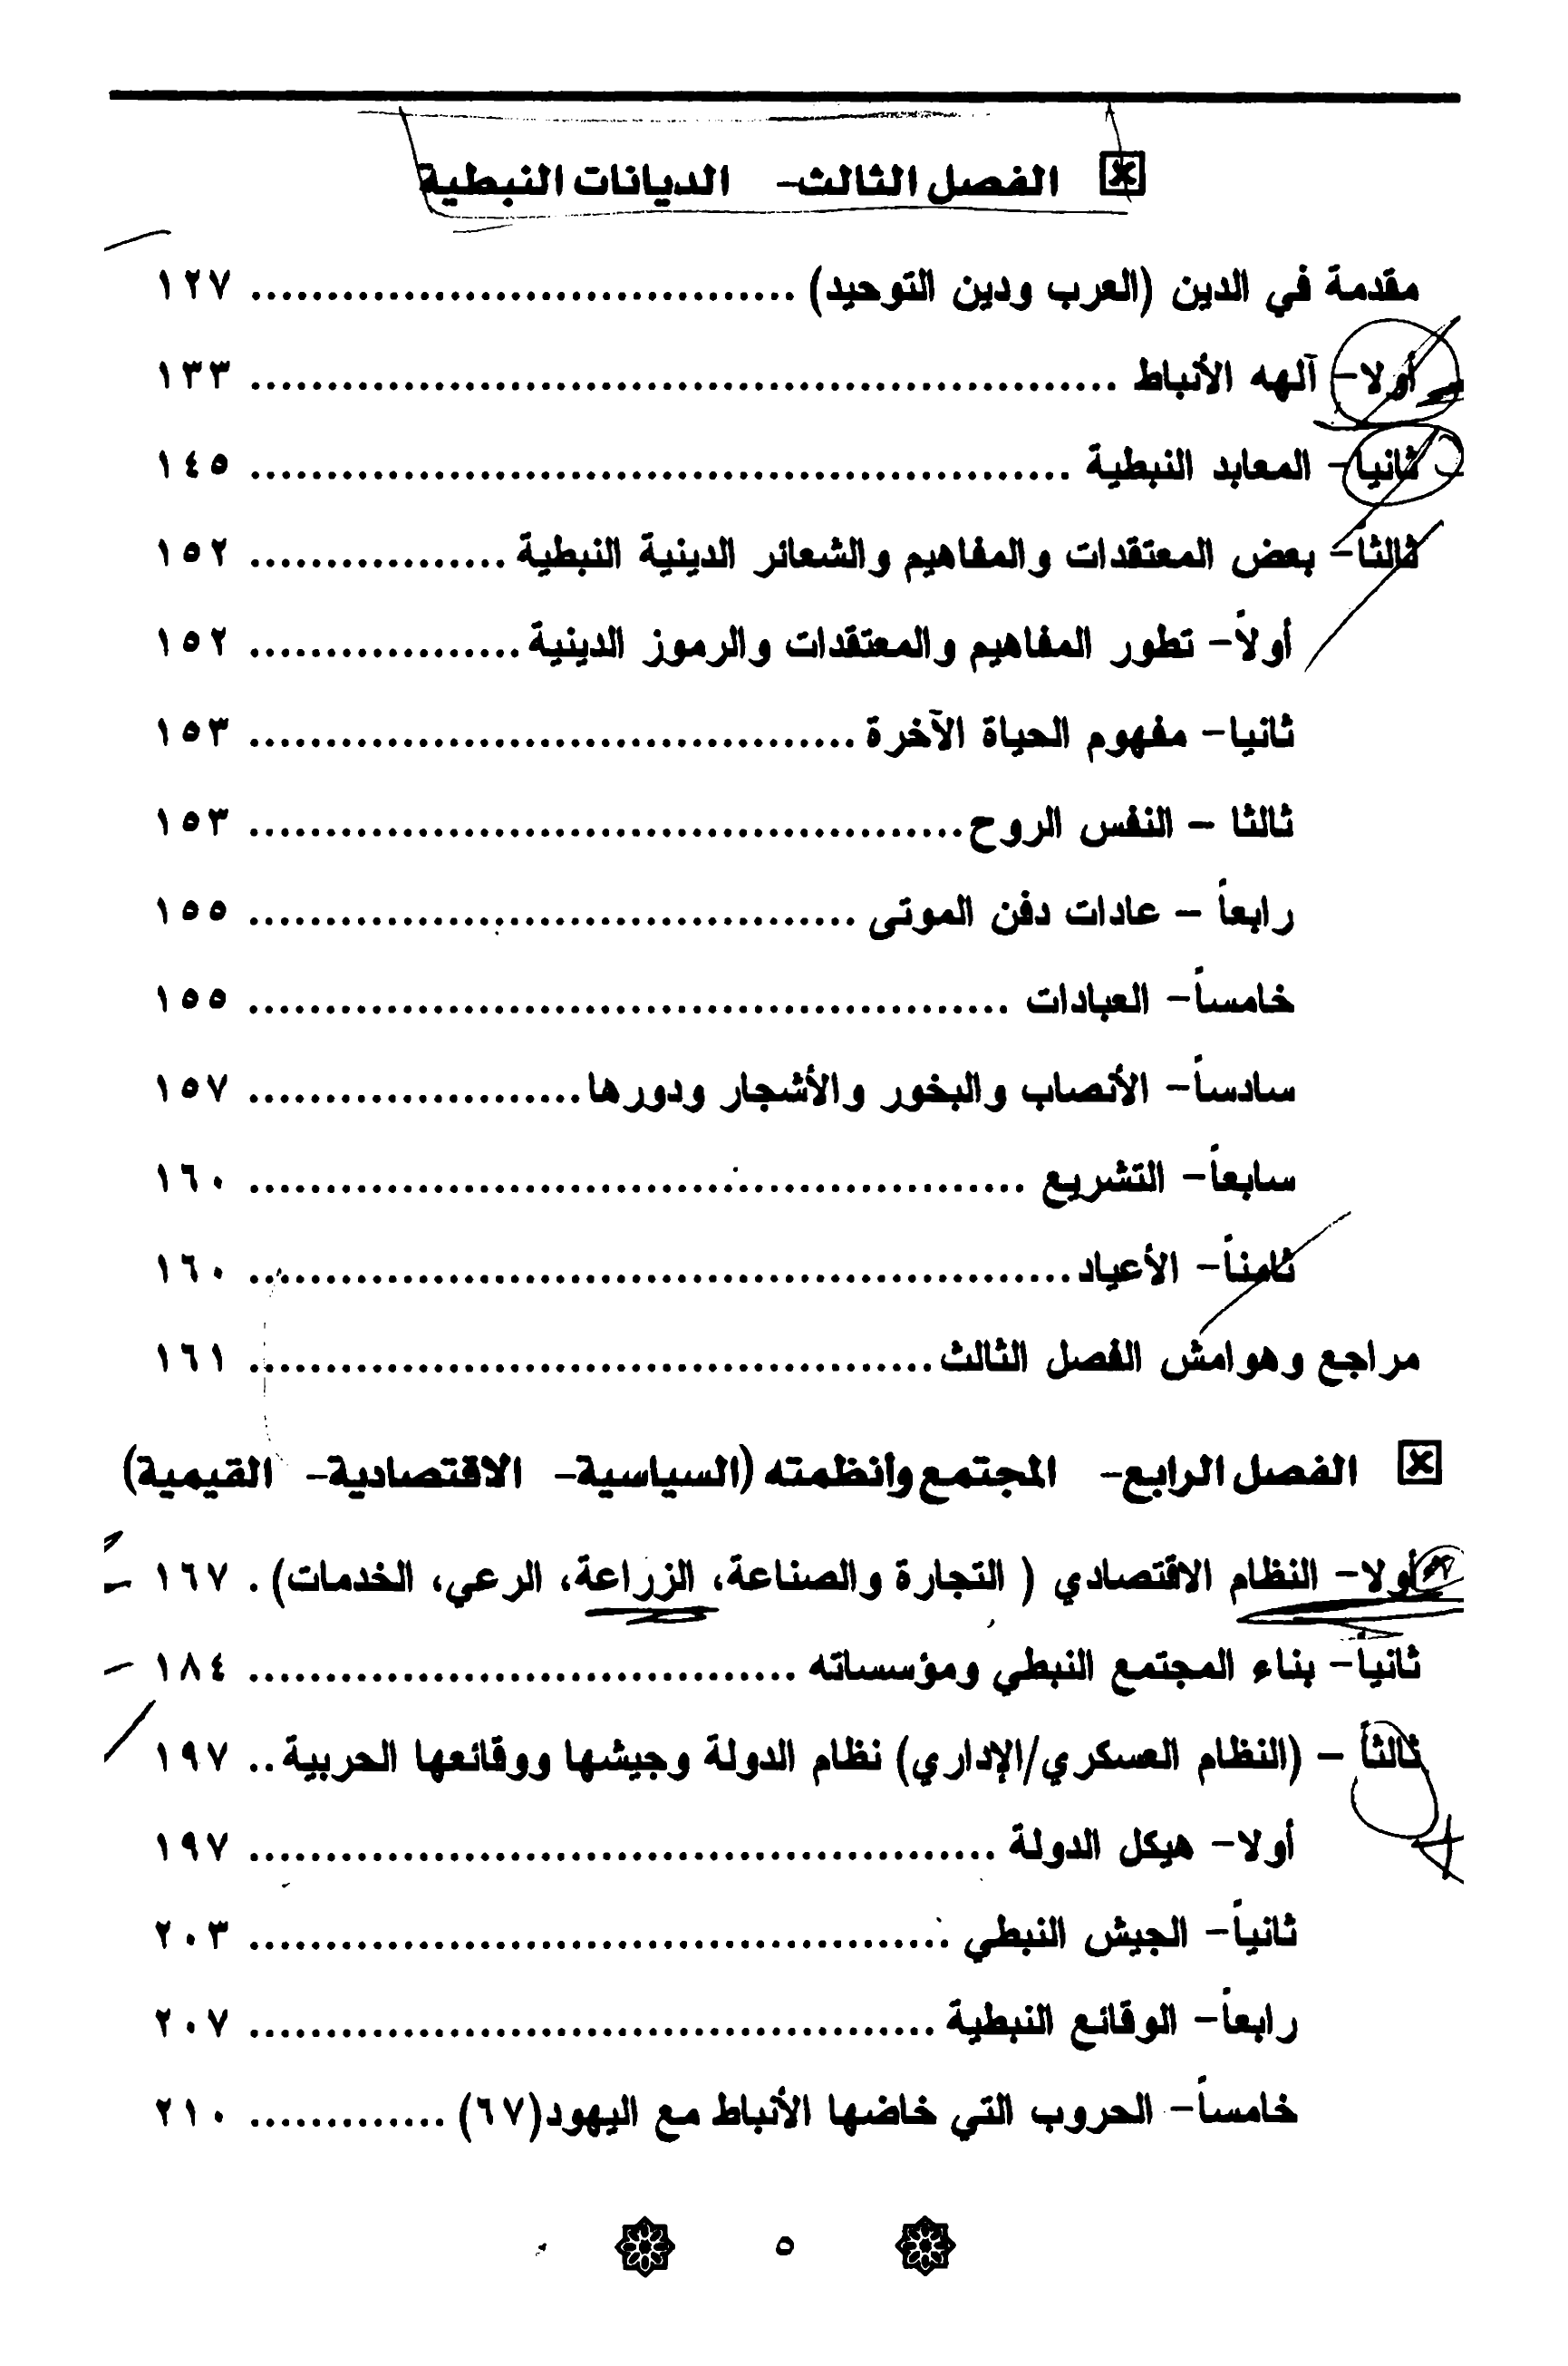 الفصل الثالث- الديانات النبطية
مقدمة في الدين (العرب ودين التوحيد) .................................... ١٢٧
أولا- آلهه الأنباط ......................................................... ١٣٣
ثانيا- المعابد النبطية ...................................................... ١٤٥
ثالثا- بعض المعتقدات والمفاهيم والشعائر الدينية النبطية ................. ١٥٢
أولاً- تطور المفاهيم والمعتقدات والرموز الدينية .................. ١٥٢
ثانيا- مفهوم الحياة الآخرة ........................................ ١٥٣
ثالثا - النفس الروح ............................................... ١٥٣
رابعاً - عادات دفن الموتى ........................................ ١٥٥
خامساً- العبادات .................................................. ١٥٥
سادساً- الأنصاب والبخور والأشجار ودورها ...................... ١٥٧
سابعاً- التشريع ................................................... ١٦٠
ثامناً- الأعياد ...................................................... ١٦٠
مراجع وهوامش الفصل الثالث ............................................. ١٦١
الفصل الرابع- المجتمع وانظمته (السياسية- الاقتصادية- القيمية)
أولا- النظام الاقتصادي ( التجارة والصناعة، الزراعة، الرعي، الخدمات) . ١٦٧
ثانياً- بناء المجتمع النبطي ومؤسساته .................................... ١٨٤
ثالثاً - (النظام العسكري/الإداري) نظام الدولة وجيشها ووقائعها الحربية .. ١٩٧
أولا- هيكل الدولة ................................................. ١٩٧
ثانياً- الجيش النبطي .............................................. ٢٠٣
رابعاً- الوقائع النبطية ............................................. ٢٠٧
خامساً- الحروب التي خاضها الأنباط مع اليهود(٦٧) ............. ٢١٠
٥